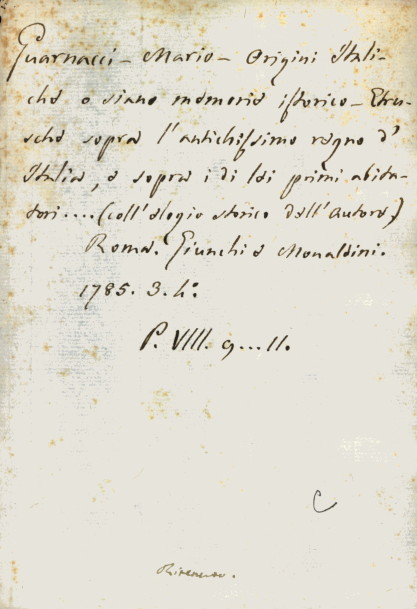 Guarnacci - Mario - Origini Itali-
che o siano memorie istorico - Etru-
sche sopra l'antichissimo regno d'
Italia, e sopra i di lei primi abita-
tori.... (coll'elogio storico dell'autore)
Roma. Giunchi e Monaldini.
1785. 3. 4º.
P. VIII. 9...11.
C